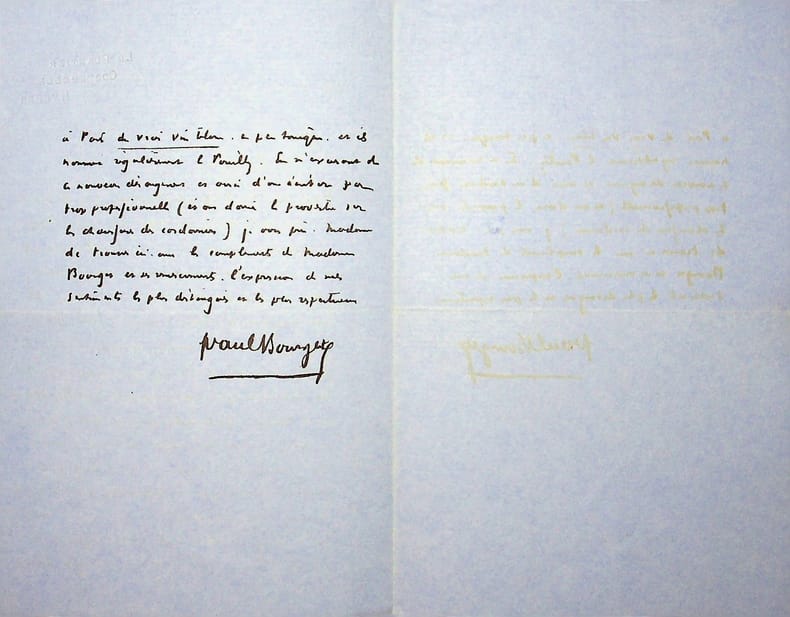 à de vrai vin blanc. et il
nomme régulièrement le Pouilly. En m'excusant de
ce nouveau et aussi d'une écriture par
trop professionnelle (le proverbe sur
les chaussures des cordonniers) je vous prie, Madame
de trouver ici avec les compliments de Madame
Bourget et ses remerciements, l'expression de mes
sentiments les plus distingués et les plus respectueux
Paul Bourget